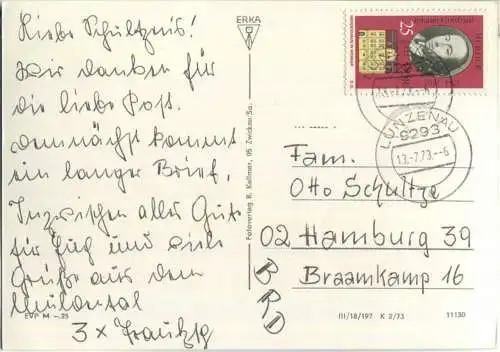 Liebe Schultzens!
Wir danken für
die liebe Post.
Demnächst kommt
ein langer Brief.
Inzwischen alles Gute
für Euch und viele
Grüße aus dem
Muldental
3 x
EVP M -.25
ERKA
Fotoverlag R. Kallmer, 95 Zwickau/Sa.
25
DDR
LUNZENAU
9293
13.-7.73.--6
Fam.
Otto Schultze
02 Hamburg 39
Braamkamp 16
BRD
III/18/197 K 2/73 11130